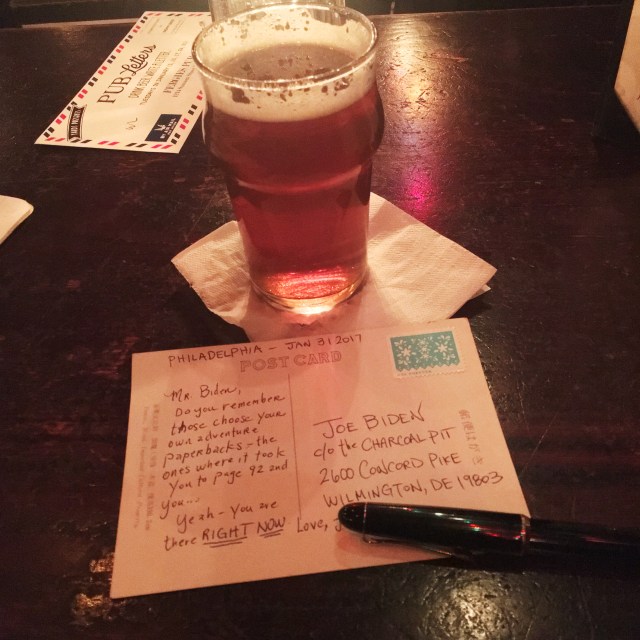 PUB Letters
PHILADELPHIA - JAN 31 2017
POST CARD
Mr. Biden,
Do you remember
those choose your
own adventure
paperbacks - the
ones where it took
you to page 92 and
you...
Yeah - You are
there RIGHT NOW Love,
JOE BIDEN
c/o the CHARCOAL PIT
2600 CONCORD PIKE
WILMINGTON, DE 19803
郵便はがき